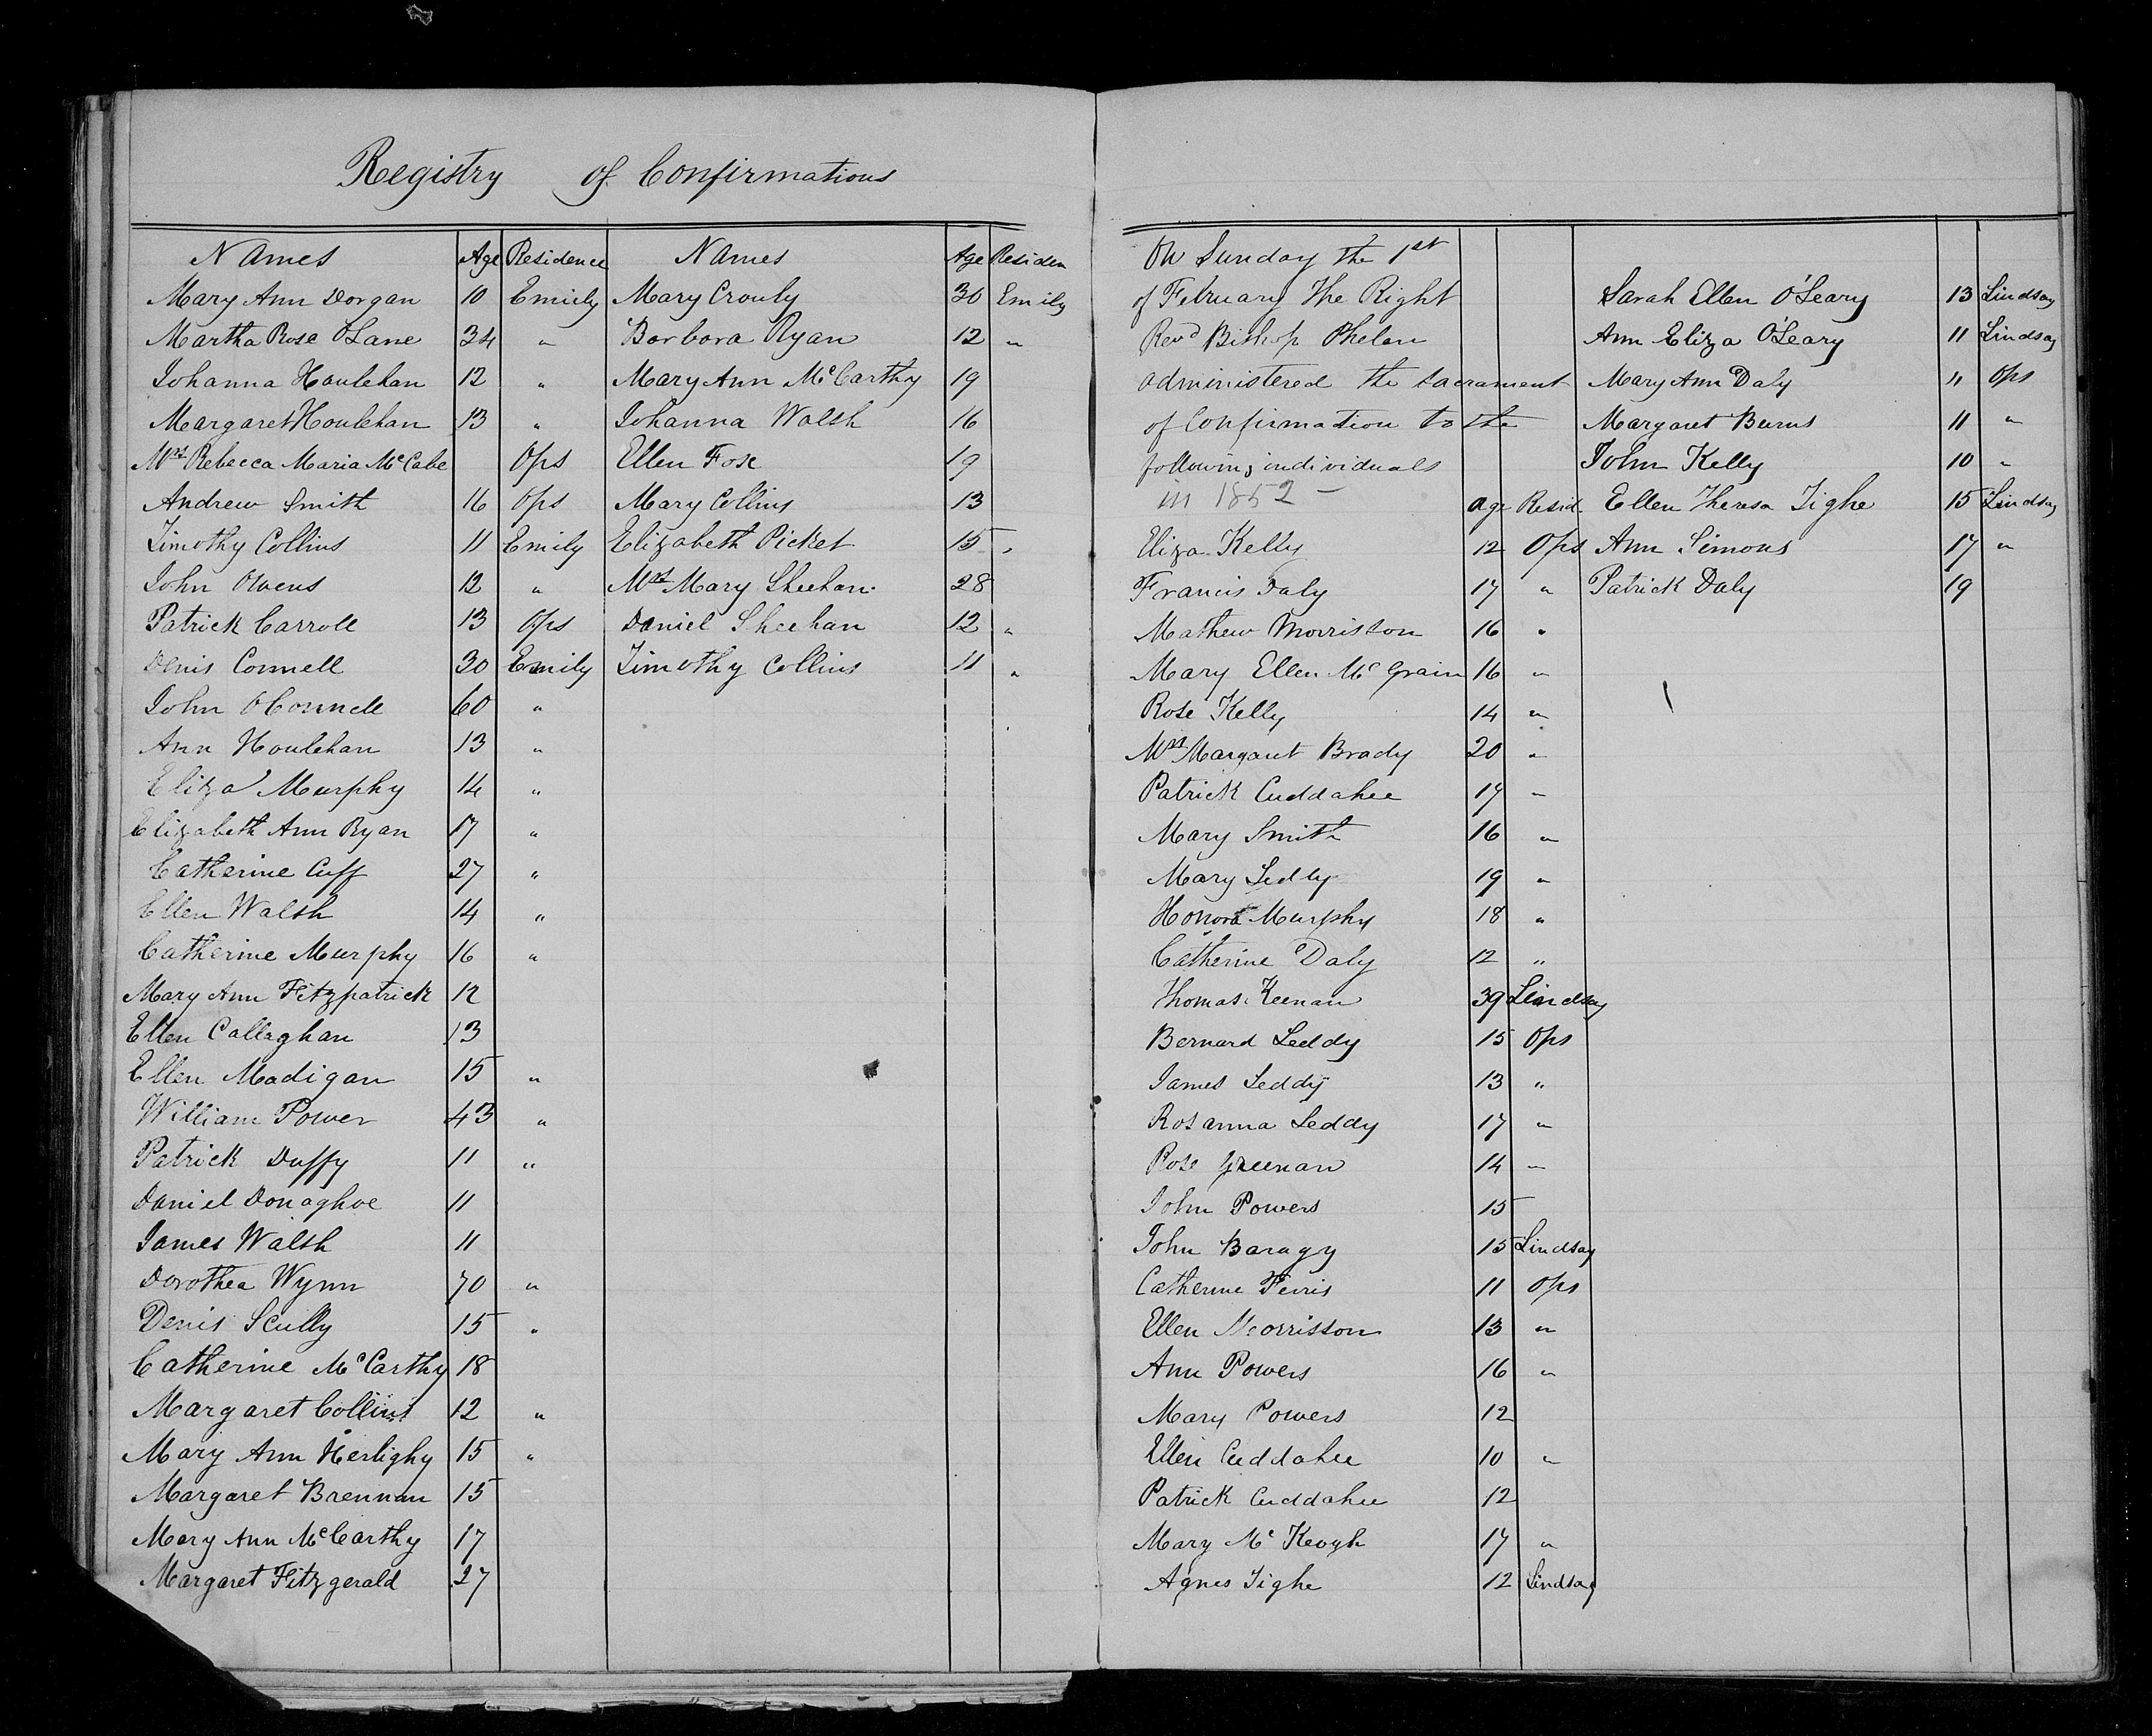 Registry of Confirmations
Names Age Residence
Mary Ann Dorgan 10 Emily
Martha Rose O'Lane 34 "
Johanna Houlehan 12 "
Margaret Houlehan 13 "
Mrs Rebecca Maria McCabe Ops
Andrew Smith 16 Ops
Timothy Collins 11 Emily
John Owens 12 "
Patrick Carroll 13 Ops
Denis Connell 30 Emily
John OConnell 60 "
Ann Houlehan 13 "
Eliza Murphy 14 "
Elizabeth Ann Ryan 17 "
Catherine Cuff 27 "
Ellen Walsh 14 "
Catherine Murphy 16 "
Mary Ann Fitzpatrick 12
Ellen Callaghan 13
Ellen Madigan 15 "
William Power 43 "
Patrick Duffy 11 "
Daniel Donaghoe 11
James Walsh 11
Dorothea Wynn 70 "
Denis Scully 15 "
Catherine McCarthy 18
Margaret Collins 12 "
Mary Ann Herlighy 15 "
Margaret Brennan 15
Mary Ann McCarthy 17
Margaret Fitzgerald 27
Names Age Residen
Mary Crouly 30 Emily
Barbara Ryan 12 "
Mary Ann McCarthy 19
Johanna Walsh 16
Ellen Fox 19
Mary Collins 13
Elizabeth Picket 15 "
Mrs Mary Sheehan 28
Daniel Sheehan 12 "
Timothy Collins 11 "
On Sunday the 1st
of February The Right
Revd Bishop Phelan
administered the sacrament
of Confirmation to the
following individuals
in 1852 - age Resid.
Eliza Kelly 12 Ops
Francis Daly 17 "
Mathew Morrisson 16 "
Mary Ellen McGrain 16 "
Rose Kelly 14 "
Mrs Margaret Brady 20 "
Patrick Cuddahee 17 "
Mary Smith 16 "
Mary Ledly 19 "
Honora Murphy 18 "
Catherine Daly 12 "
Thomas Keenan 39 Lindsay
Bernard Leddy 15 Ops
James Leddy 13 "
Rosanna Leddy 17 "
Rose Greenan 14 "
John Powers 15
John Baragy 15 Lindsay
Catherine Ferris 11 Ops
Ellen Morrisson 13 "
Ann Powers 16 "
Mary Powers 12
Ellen Cuddahee 10 "
Patrick Cuddahee 12
Mary McKeogh 17 "
Agnes Tighe 12 Lindsay
Sarah Ellen O'Leary 13 Lindsay
Ann Eliza O'Leary 11 Lindsay
Mary Ann Daly " Ops
Margaret Burns 11 "
John Kelly 10 "
Ellen Theresa Tighe 15 Lindsay
Ann Simons 17 "
Patrick Daly 19